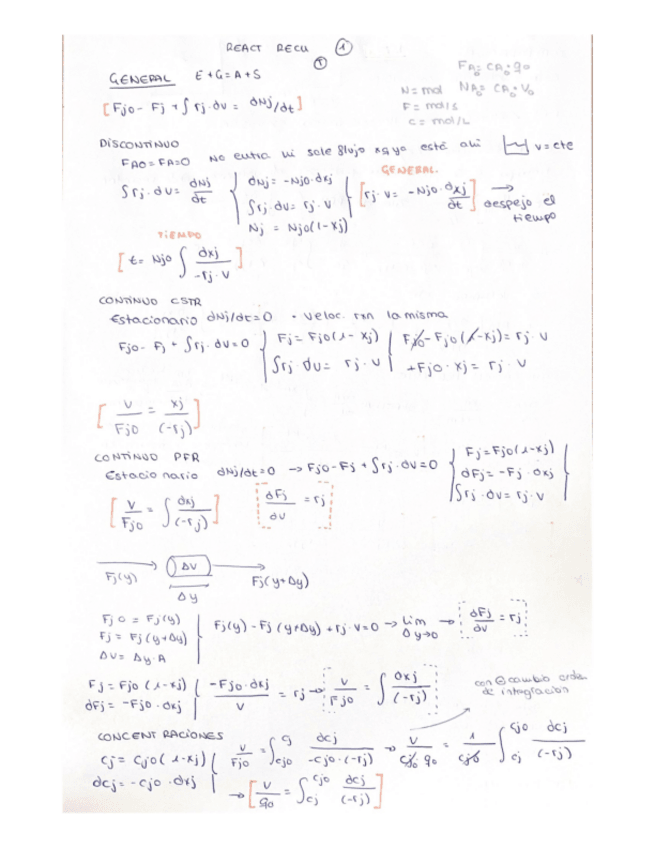 REACT RECU ①
①
GENERAL E+G=A+S
FA₀ = CA₀·q₀
N = mol NA₀ = CA₀·V₀
F = mol/s
C = mol/L
[Fj0 - Fj + ∫rj·dv = dNj/dt]
DISCONTINUO
FA0 = FA = 0 No entra ni sale flujo xq ya está ahí V = cte
GENERAL.
∫rj·dv = dNj/dt { dNj = -Nj0·dxj
∫rj·dv = rj·V
Nj = Nj0(1-xj) | [rj·V = -Nj0·dxj/dt] → despejo el
tiempo
TIEMPO
[t = Nj0 ∫ dxj/-rj·V]
CONTINUO CSTR
Estacionario dNj/dt=0 · Veloc. rxn la misma
Fj0 - Fj + ∫rj·dv = 0 { Fj = Fj0(1-xj) | Fj0 - Fj0(1-xj) = rj·V
∫rj dv = rj·V | +Fj0·xj = rj·V
[V/Fj0 = xj/(-rj)]
CONTINUO PFR
Estacionario dNj/dt=0 → Fj0 - Fj + ∫rj·dv = 0 { Fj = Fj0(1-xj)
dFj = -Fj·dxj
∫rj·dv = rj·V
[V/Fj0 = ∫ dxj/(-rj)] dFj/dv = rj
Fj(y) → ΔV → Fj(y+Δy)
Δy
Fj0 = Fj(y)
Fj = Fj(y+Δy)
ΔV = Δy·A | Fj(y) - Fj(y+Δy) + rj·V = 0 → Lim Δy→0 → dFj/dv = rj
Fj = Fj0(1-xj)
dFj = -Fj0·dxj | -Fj0·dxj/V = rj → V/Fj0 = ∫ dxj/(-rj)
con ⊖ cambio orden
de integración
CONCENTRACIONES
Cj = Cj0(1-xj)
dCj = -Cj0·dxj { V/Fj0 = ∫Cj0^Cj dCj/-Cj0·(-rj) → V/Cj0·q0 = 1/Cj0 ∫Cj^Cj0 dCj/(-rj)
→ [V/q0 = ∫Cj^Cj0 dCj/(-rj)]